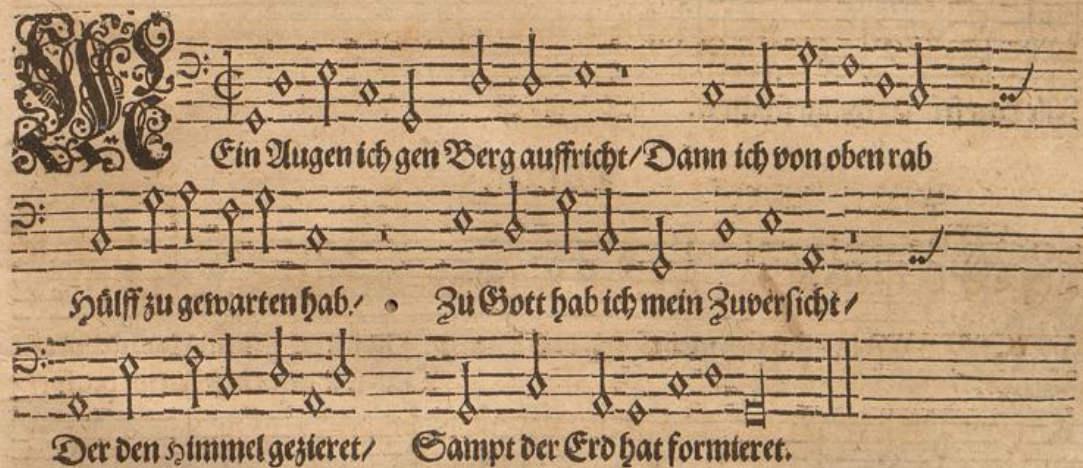 MEin Augen ich gen Berg auffricht/ Dann ich von oben rab
Hülff zu gewarten hab/ Zu Gott hab ich mein Zuversicht/
Der den Himmel gezieret/ Sampt der Erd hat formieret.